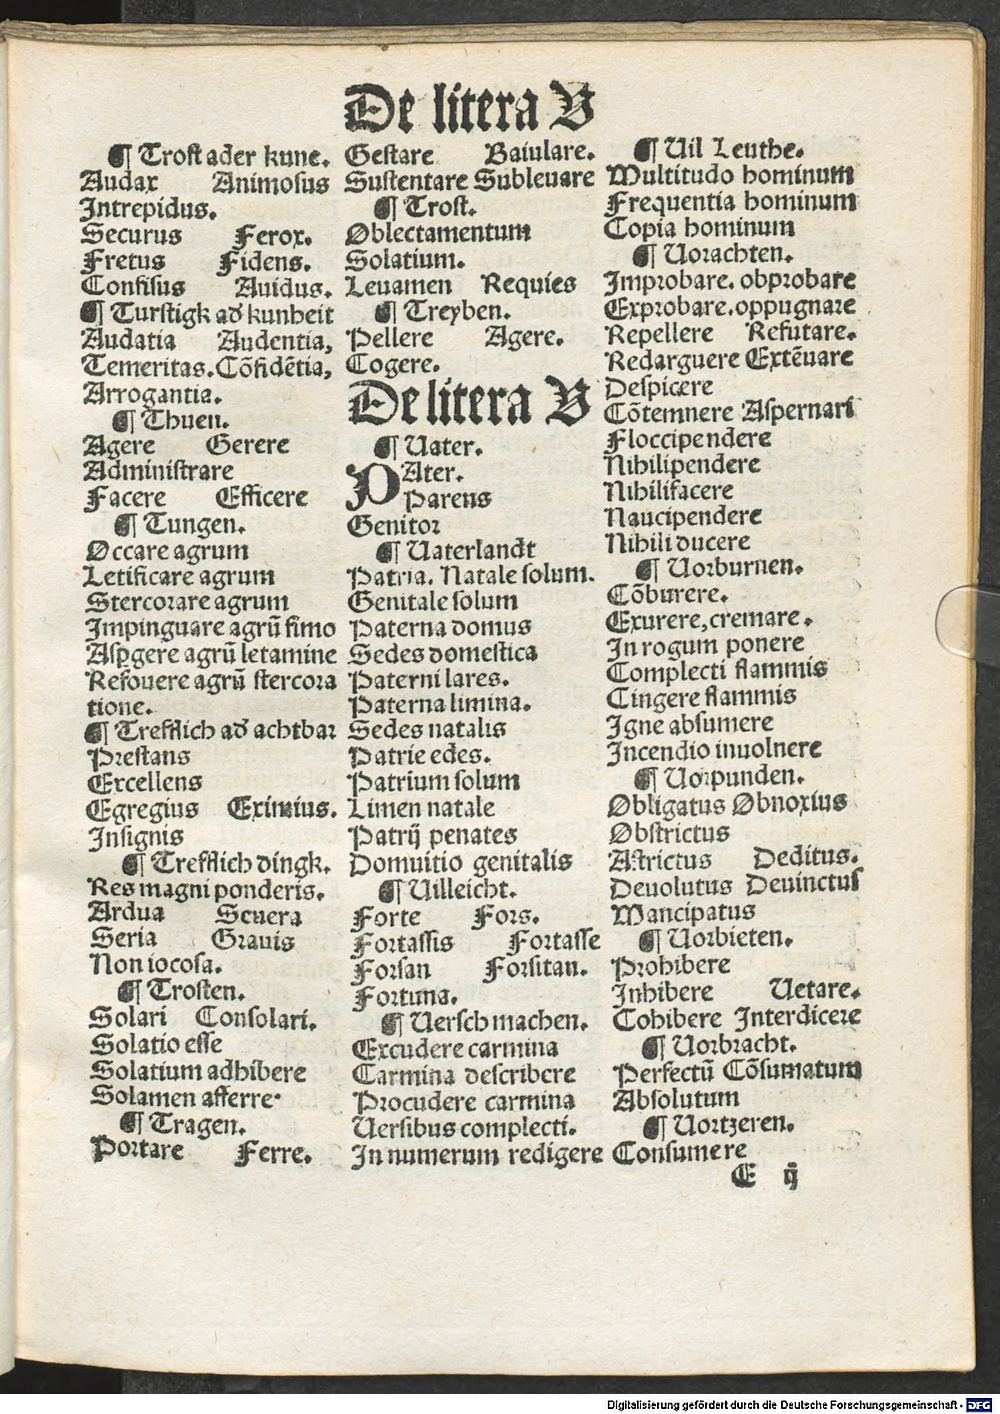 De litera V
¶ Trost ader kune.
Audax Animosus
Intrepidus.
Securus Ferox.
Fretus Fidens.
Confisus Auidus.
¶ Turstigk ad kunheit
Audatia Audentia,
Temeritas. Cōfidētia,
Arrogantia.
¶ Thuen.
Agere Gerere
Administrare
Facere Efficere
¶ Tungen.
Occare agrum
Letificare agrum
Stercorare agrum
Impinguare agrū fimo
Aspgere agrū letamine
Refouere agrū stercora
tione.
¶ Trefflich ad achtbar
Prestans
Excellens
Egregius Eximius.
Insignis
¶ Trefflich dingk.
Res magni ponderis.
Ardua Seuera
Seria Grauis
Non iocosa.
¶ Trosten.
Solari Consolari.
Solatio esse
Solatium adhibere
Solamen afferre.
¶ Tragen.
Portare Ferre.
Gestare Baiulare.
Sustentare Subleuare
¶ Trost.
Oblectamentum
Solatium.
Leuamen Requies
¶ Treyben.
Pellere Agere.
Cogere.
De litera V
¶ Uater.
PAter.
Parens
Genitor
¶ Uaterlandt
Patria. Natale solum.
Genitale solum
Paterna domus
Sedes domestica
Paterni lares.
Paterna limina.
Sedes natalis
Patrie edes.
Patrium solum
Limen natale
Patrij penates
Domuitio genitalis
¶ Uilleicht.
Forte Fors.
Fortassis Fortasse
Forsan Forsitan.
Fortuna.
¶ Uersch machen.
Excudere carmina
Carmina describere
Procudere carmina
Uersibus complecti.
In numerum redigere
¶ Uil Leuthe.
Multitudo hominum
Frequentia hominum
Copia hominum
¶ Uorachten.
Improbare. obprobare
Exprobare. oppugnare
Repellere Refutare.
Redarguere Extēuare
Despicere
Cōtemnere Aspernari
Floccipendere
Nihilipendere
Nihilifacere
Naucipendere
Nihili ducere
¶ Uorburnen.
Cōburere.
Exurere, cremare.
In rogum ponere
Complecti flammis
Cingere flammis
Igne absumere
Incendio inuolnere
¶ Uorpunden.
Obligatus Obnoxius
Obstrictus
Astrictus Deditus.
Deuolutus Deuinctus
Mancipatus
¶ Uorbieten.
Prohibere
Inhibere Uetare.
Cohibere Interdicere
¶ Uorbracht.
Perfectū Cōsumatum
Absolutum
¶ Uortzeren.
Consumere
E ij
Digitalisierung gefördert durch die Deutsche Forschungsgemeinschaft - DFG